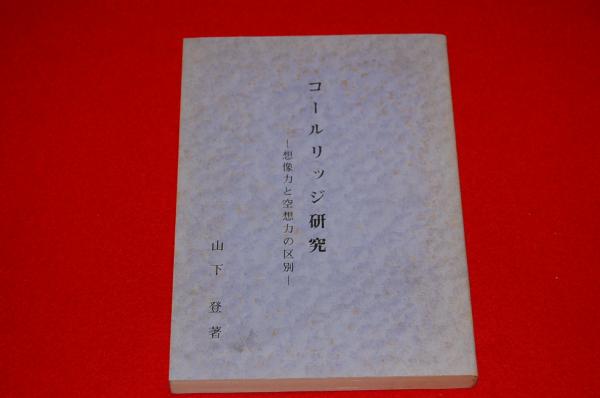 コールリッジ研究
―想像力と空想力の区別―
山下登著